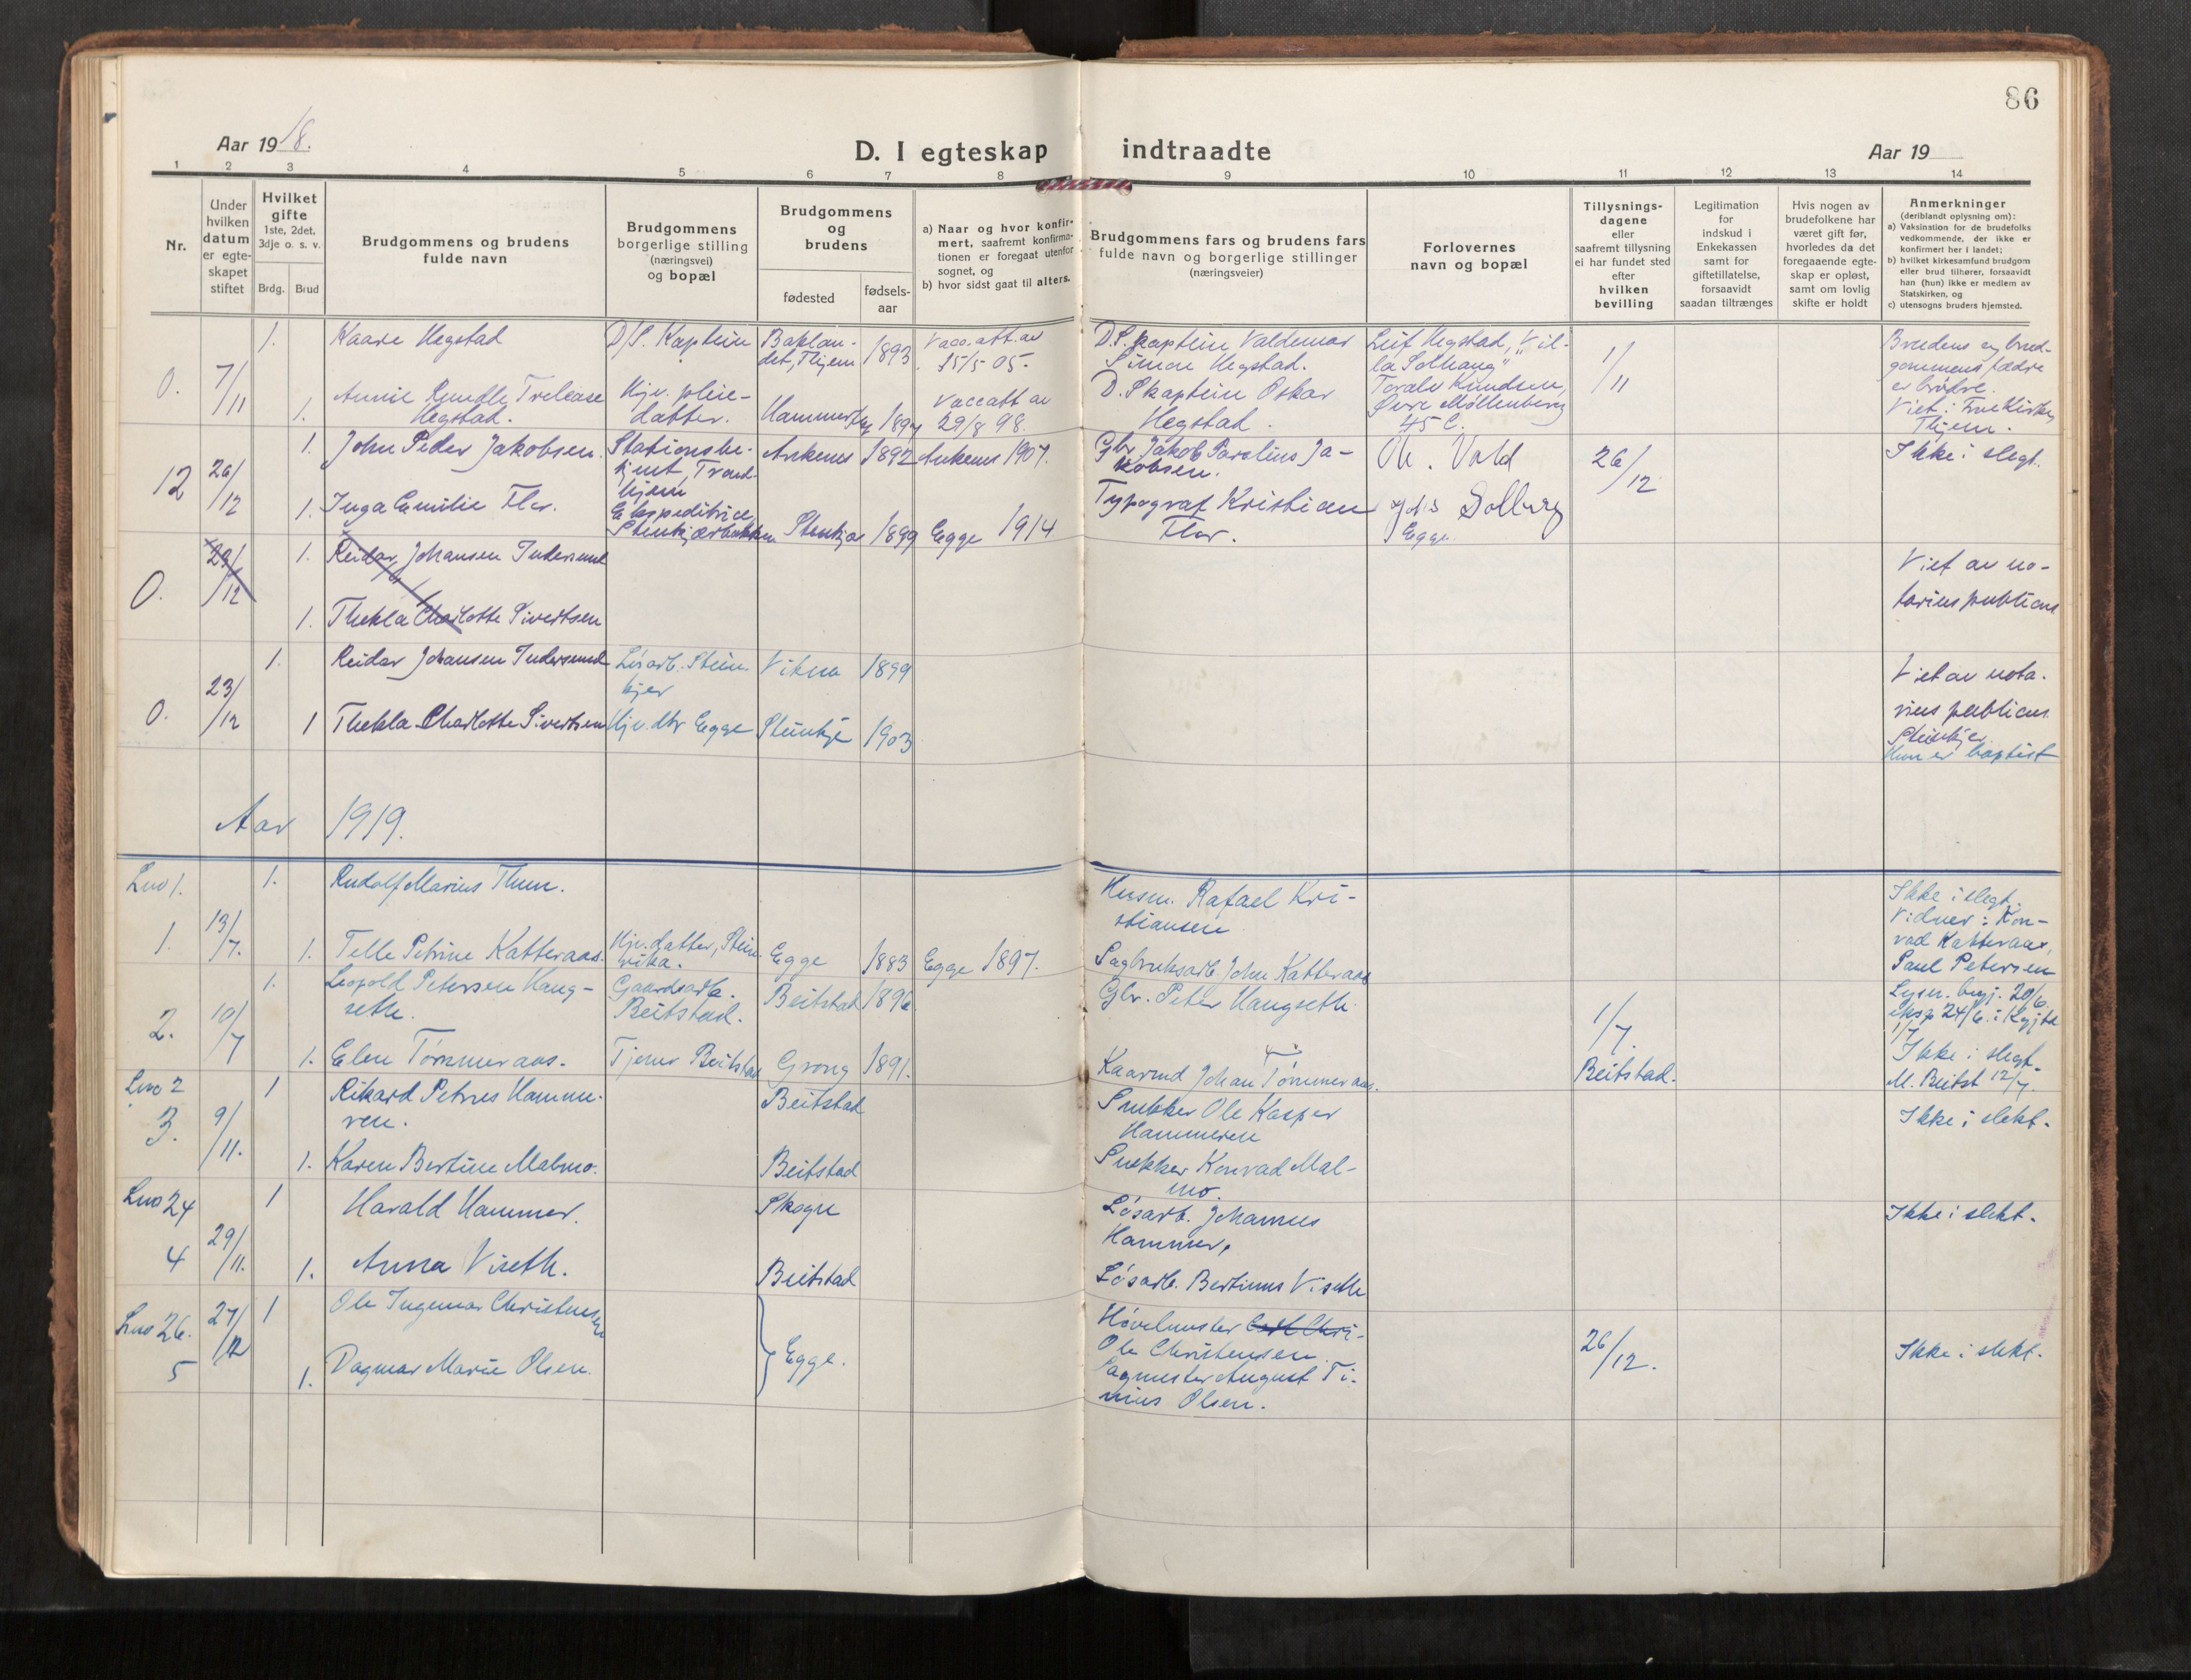 86
Aar 1918.
D. I egteskap indtraadte
Aar 19
1 2 3 4 5 6 7 8 9 10 11 12 13 14
Nr.
Under hvilken datum er egte-skapet stiftet
Hvilket gifte 1ste, 2det, 3dje o. s. v.
Brdg. Brud
Brudgommens og brudens fulde navn
Brudgommens borgerlige stilling (næringsvei) og bopæl
Brudgommens og brudens
fødested
fødsels-aar
a) Naar og hvor konfir-mert, saafremt konfirma-tionen er foregaat utenfor sognet, og
b) hvor sidst gaat til alters.
Brudgommens fars og brudens fars fulde navn og borgerlige stillinger (næringsveier)
Forlovernes navn og bopæl
Tillysnings-dagene eller saafremt tillysning ei har fundet sted efter hvilken bevilling
Legitimation for indskud i Enkekassen samt for giftetillatelse, forsaavidt saadan tiltrænges
Hvis nogen av brudefolkene har været gift før, hvorledes da det foregaaende egte-skap er opløst, samt om lovlig skifte er holdt
Anmerkninger (deriblandt oplysning om):
a) Vaksination for de brudefolks vedkommende, der ikke er konfirmert her i landet;
b) hvilket kirkesamfund brudgom eller brud tilhører, forsaavidt han (hun) ikke er medlem av Statskirken, og
c) utensogns bruders hjemsted.
0. 7/11
1. Kaare Hegstad
D/S. Kaptein
Baklan-
det, Thjem 1893
Vacc. att. av
15/5 05.
D.S. kaptein Valdemar
Simon Hegstad.
Leif Hegstad, "Vil-
la Solhaug"
1/11
Brudens og brud-
gommens fædre
er brødre.
Viet i Frue Kirke,
Thjem.
1. Annie Rundle Trelease
Hegstad.
Hjv. pleie-
datter.
Hammerfest 1897
Vacc att av
29/8 98.
D. Skaptein Oskar
Hegstad.
Toralv Knudsen,
Øvre Møllenberg
45 C.
12 26/12
1. John Peder Jakobsen.
Stationsbe-
tjent, Trond-
hjem
Ankenes 1892 Ankenes 1907.
Gbr Jakob Parelius Ja-
kobsen.
Ole Vold
26/12
Ikke i slegt.
1. Inga Emilie Flor.
Ekspeditrice,
Stenkjærbakken
Stenkjær 1899 Egge 1914
Typograf Kristian
Flor.
Solberg
Egge
0. 29/12
1. Reidar Johansen Indersund
1. Thekla Charlotte Sivertsen
Viet av no-
tarius publicus
0. 23/12
1. Reidar Johansen Indersund
Løsarb. Stein-
kjer
Vikna 1899
1 Thekla Charlotte Sivertsen
Hjv. dtr Egge Steinkje 1903
Viet av nota-
rius publicus
Steinkje
Hun er baptist
Aar 1919.
Lno 1.
1. 13/7.
1. Rudolf Marius Thun.
Husm. Rafael Kri-
stiansen
Ikke i slegt.
Vidner: Kon-
rad Katteraas,
Paul Petersen
1. Telle Petrine Katteraas.
Hjv. datter, Stein-
vika.
Egge 1883 Egge 1897.
Sagbruksarb. John Katteraas
2. 10/7
1. Leopold Petersen Haug-
seth.
Gaardsarb.
Beitstad.
Beitstad 1896
Gbr. Peter Haugseth.
1/7.
Beitstad.
Lysn. begj. 20/6.
eksp 24/6.
1/7
Ikke i slegt.
M. Beitst 12/7.
1. Elen Tømmeraas.
Tjener Beitstad Grong 1891.
Kaarmd Johan Tømmeraas.
Lno 2
3. 9/11.
1 Rikard Petrus Hamme-
ren.
Beitstad
Snekker Ole Kasper
Hammeren
Ikke i slekt.
1. Karen Bertine Malmo.
Beitstad
Snekker Konrad Mal-
mo.
Lno 24
4 29/11.
1 Harald Hammer.
Skogn
Løsarb. Johannes
Hammer.
Ikke i slekt.
1. Anna Viseth.
Beitstad
Løsarb. Bertinus Viseth
Lno 26.
5 27/12
1 Ole Ingemar Christensen
Egge.
Høvelmester
Ole Christensen.
26/12.
Ikke i slekt.
1. Dagmar Marie Olsen.
Sagmester August Ti-
nius Olsen.